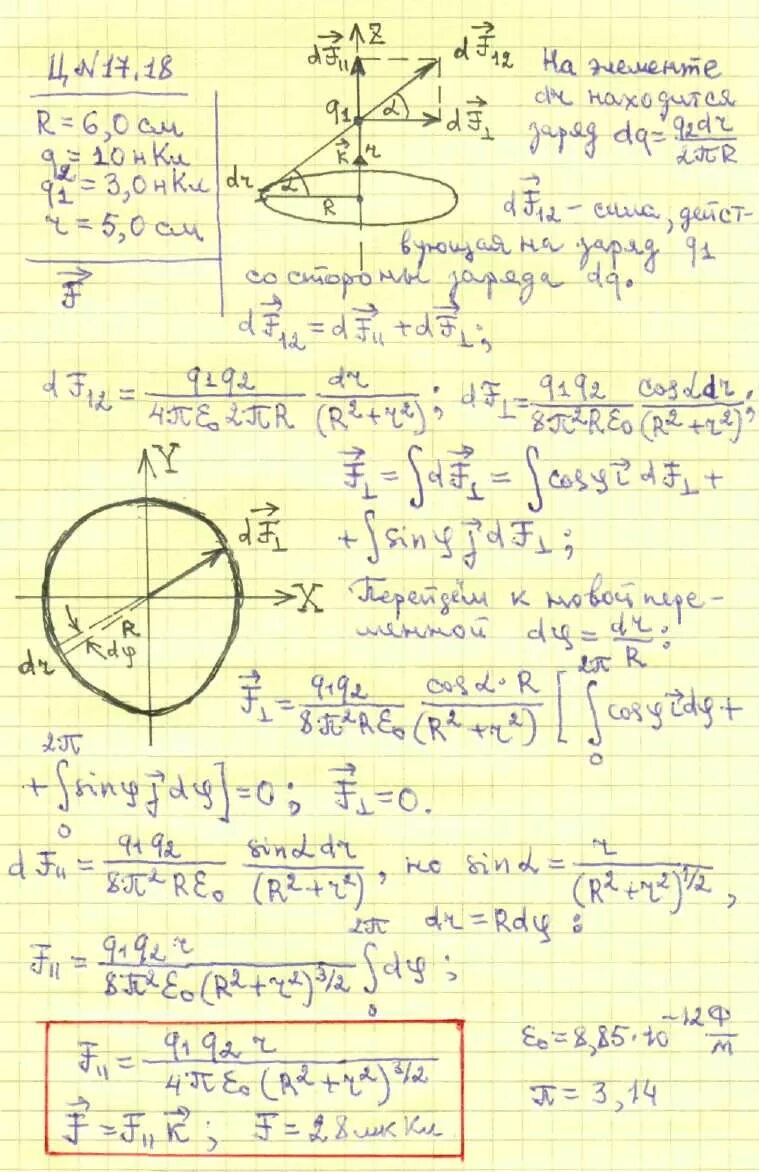 Ц N 17.18
R = 6,0 см
q2 = 10 нКл
q1 = 3,0 нКл
r = 5,0 см
F⃗
Z
dF⃗∥
dF⃗12
q1
α
dF⃗⊥
k⃗
r
dr
α
R
На элементе
dr находится
заряд dq = q2dr/2πR
dF⃗12 – сила, дейст-
вующая на заряд q1
со стороны заряда dq.
dF⃗12 = dF⃗∥ + dF⃗⊥;
dF12 = q1q2/(4πε0 2πR) dr/(R²+r²); dF⊥ = q1q2/(8π²Rε0) cosαdr/(R²+r²);
Y
X
dF⃗⊥
R
dφ
dr
F⃗⊥ = ∫dF⃗⊥ = ∫cosφ i⃗ dF⊥ +
+ ∫sinφ j⃗ dF⊥;
Перейдём к новой пере-
менной dφ = dr/R:
F⃗⊥ = q1q2/(8π²Rε0) cosα·R/(R²+r²) [ ∫₀^2π cosφ i⃗ dφ +
+ ∫₀^2π sinφ j⃗ dφ ] = 0; F⃗⊥ = 0.
dF∥ = q1q2/(8π²Rε0) sinαdr/(R²+r²), но sinα = r/(R²+r²)^1/2,
dr = Rdφ:
F∥ = q1q2r/(8π²ε0(R²+r²)^3/2) ∫₀^2π dφ;
F∥ = q1q2r/(4πε0(R²+r²)^3/2)
F⃗ = F∥k⃗; F = 28мкКл
ε0 = 8,85·10^-12 Ф/м
π = 3,14